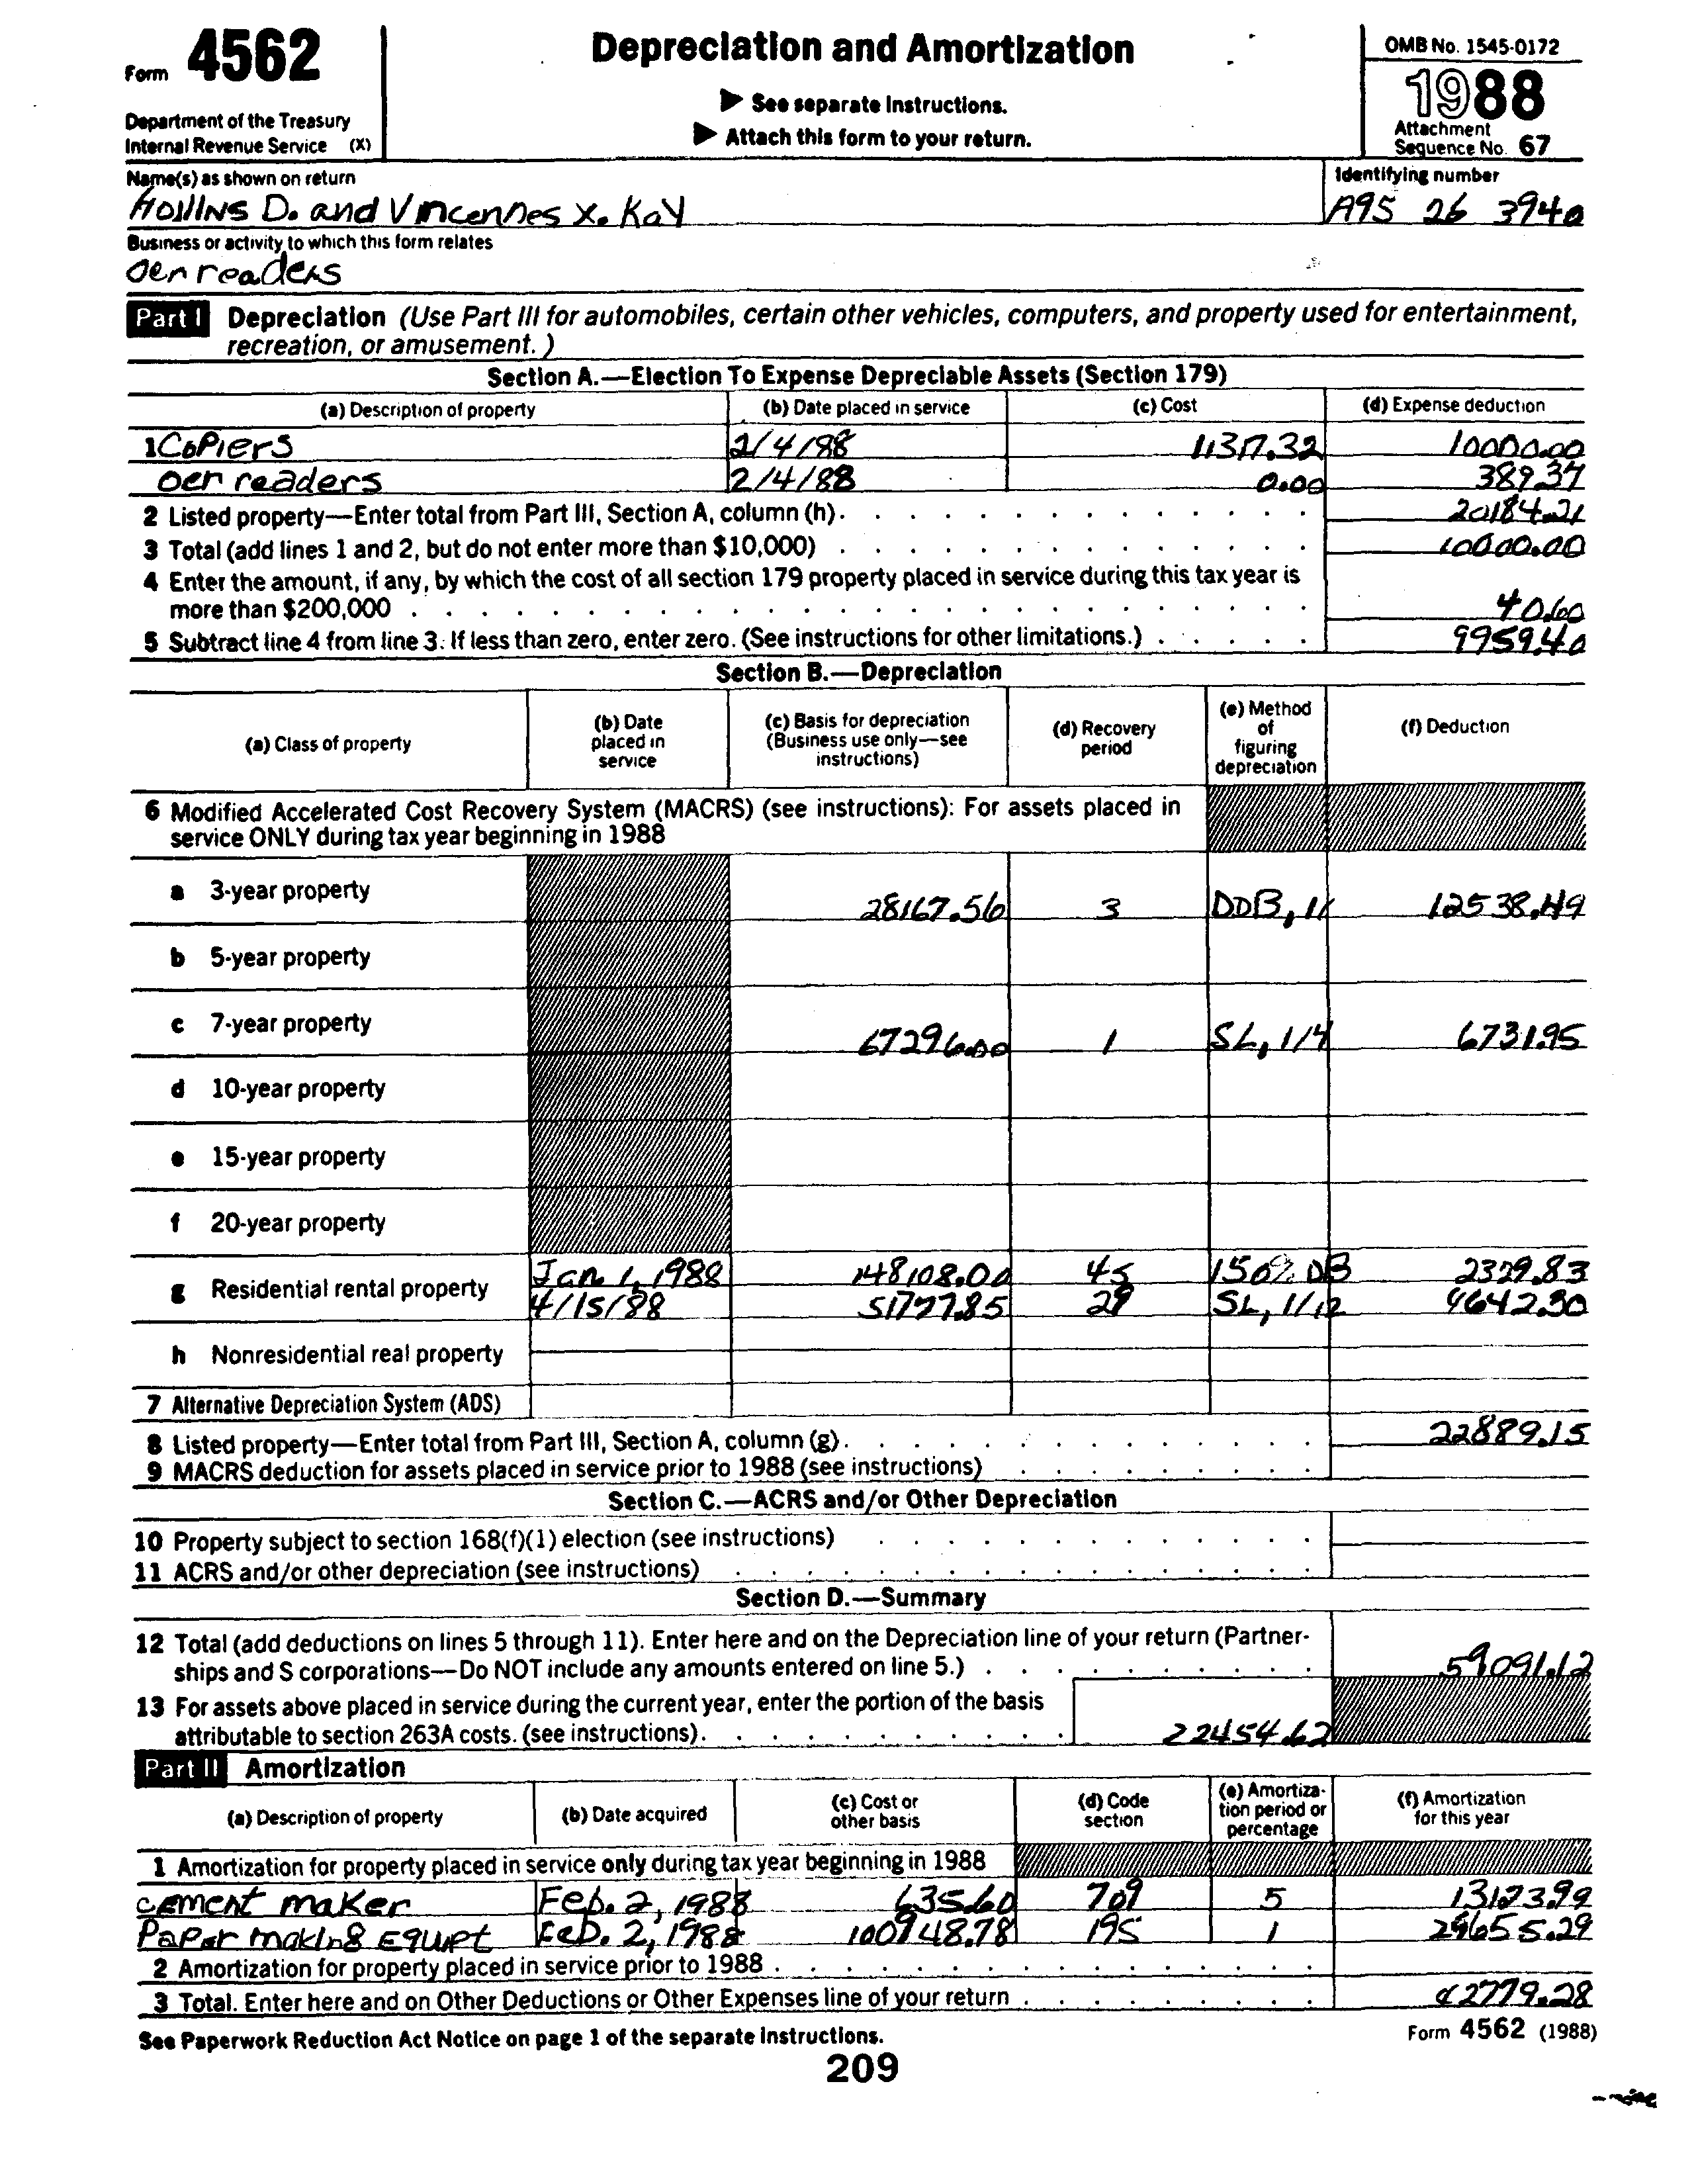 Form 4562
Depreciation and Amortization
OMB No. 1545-0172
1988
▶ See separate Instructions.
▶ Attach this form to your return.
Department of the Treasury
Internal Revenue Service (X)
Attachment
Sequence No. 67
Name(s) as shown on return
Identifying number
Hollins D. and Vincennes X. Kay
A95 26 3940
Business or activity to which this form relates
Oer readers
Part I Depreciation (Use Part III for automobiles, certain other vehicles, computers, and property used for entertainment,
recreation, or amusement.)
Section A.—Election To Expense Depreciable Assets (Section 179)
(a) Description of property (b) Date placed in service (c) Cost (d) Expense deduction
1 Copiers 2/4/88 11317.32 10000.00
oer readers 2/4/88 0.00 389.37
2 Listed property—Enter total from Part III, Section A, column (h). 20184.21
3 Total (add lines 1 and 2, but do not enter more than $10,000) 10000.00
4 Enter the amount, if any, by which the cost of all section 179 property placed in service during this tax year is
more than $200,000 40.60
5 Subtract line 4 from line 3. If less than zero, enter zero. (See instructions for other limitations.) 9959.40
Section B.—Depreciation
(a) Class of property (b) Date placed in service (c) Basis for depreciation (Business use only—see instructions) (d) Recovery period (e) Method of figuring depreciation (f) Deduction
6 Modified Accelerated Cost Recovery System (MACRS) (see instructions): For assets placed in
service ONLY during tax year beginning in 1988
a 3-year property 28167.56 3 DDB, 12538.49
b 5-year property
c 7-year property 67296.00 1 SL, 1/4 6731.95
d 10-year property
e 15-year property
f 20-year property
g Residential rental property Jan 1, 1988 148108.00 45 150% DB 2329.83
4/15/88 29 SL, 1/12 4642.30
h Nonresidential real property
7 Alternative Depreciation System (ADS)
8 Listed property—Enter total from Part III, Section A, column (g). 22889.15
9 MACRS deduction for assets placed in service prior to 1988 (see instructions)
Section C.—ACRS and/or Other Depreciation
10 Property subject to section 168(f)(1) election (see instructions)
11 ACRS and/or other depreciation (see instructions)
Section D.—Summary
12 Total (add deductions on lines 5 through 11). Enter here and on the Depreciation line of your return (Partner-
ships and S corporations—Do NOT include any amounts entered on line 5.) 59091.12
13 For assets above placed in service during the current year, enter the portion of the basis
attributable to section 263A costs. (see instructions). 22454.62
Part II Amortization
(a) Description of property (b) Date acquired (c) Cost or other basis (d) Code section (e) Amortiza-tion period or percentage (f) Amortization for this year
1 Amortization for property placed in service only during tax year beginning in 1988
cement maker Feb. 2, 1988 635.60 709 5 13123.99
Paper making Equipt Feb. 2, 1988 100948.78 195 1 29655.29
2 Amortization for property placed in service prior to 1988
3 Total. Enter here and on Other Deductions or Other Expenses line of your return 42779.28
See Paperwork Reduction Act Notice on page 1 of the separate instructions.
Form 4562 (1988)
209